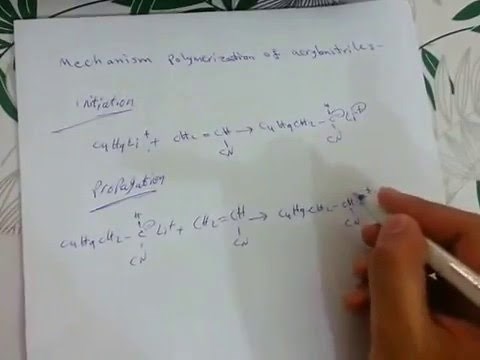 Mechanism Polymerization of acrylonitriles -
Initiation
C4H9Li+ + CH2 = CH → C4H9CH2 - C Li+
H
CN CN
Propagation
H
C4H9CH2 - C Li+ + CH2 = CH → C4H9CH2 - CH
CN CN CN